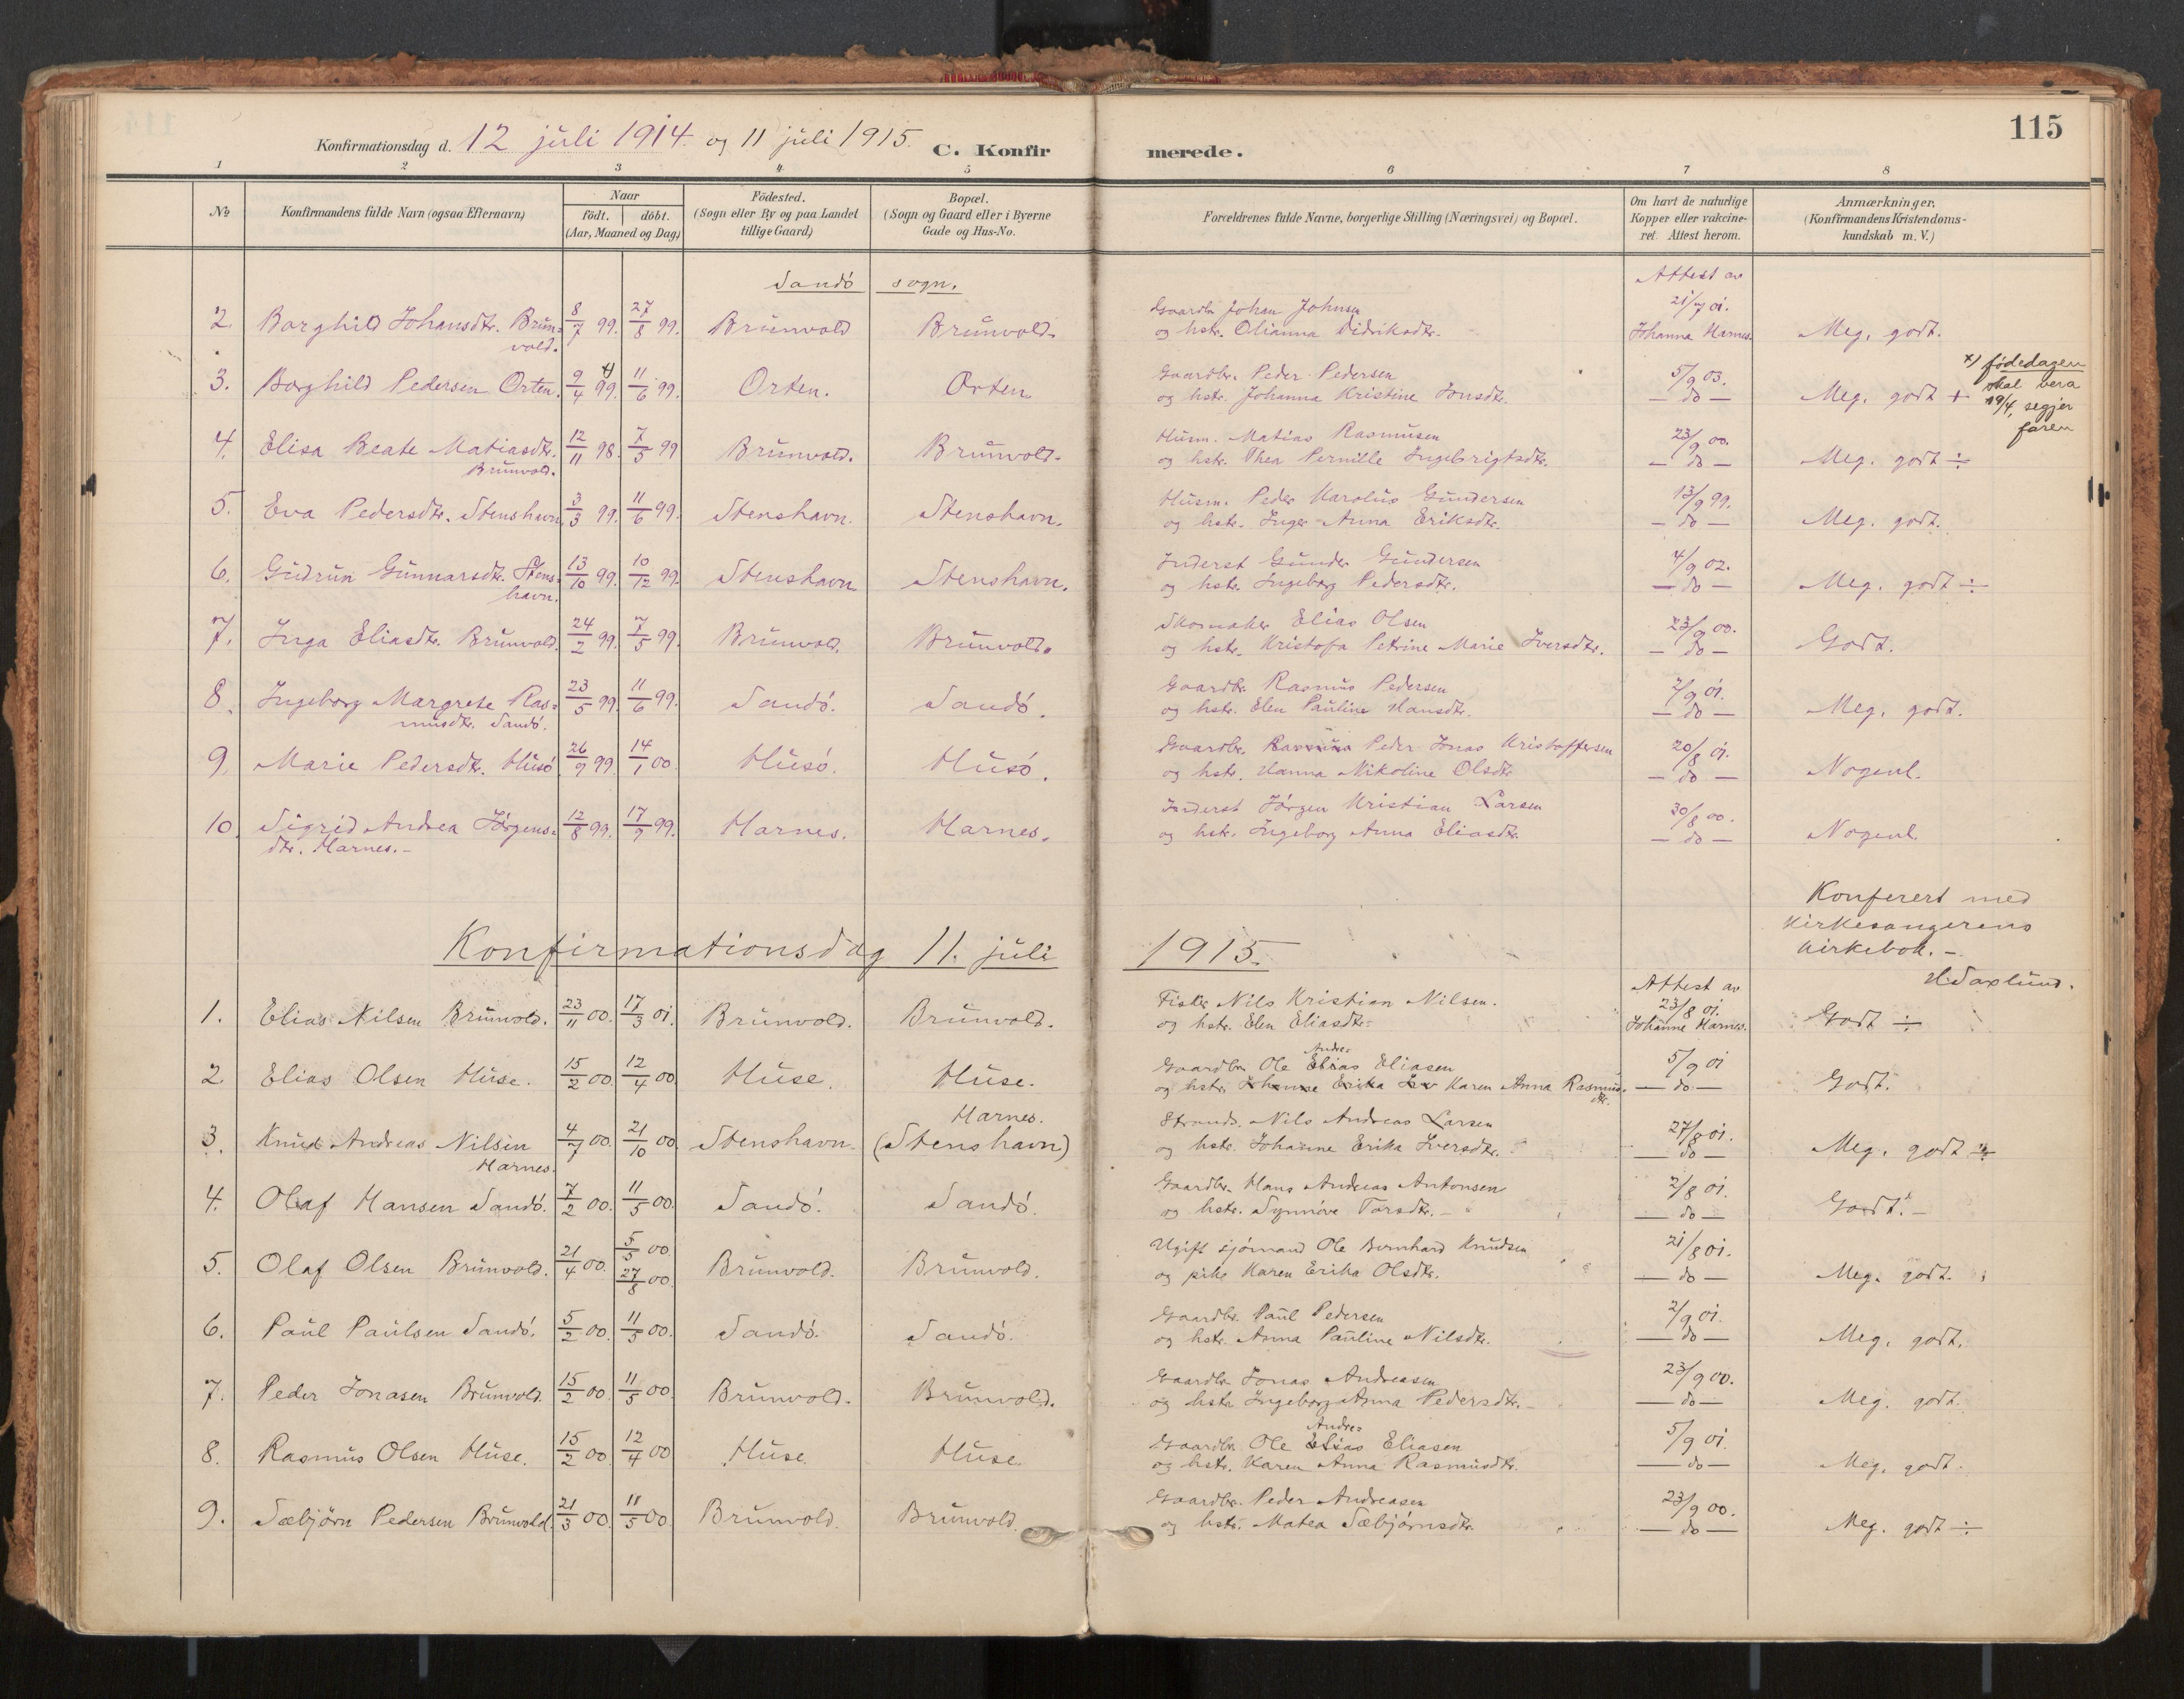 115
Konfirmationsdag d. 12 juli 1914 og 11 juli 1915.
C. Konfirmerede.
1 2 3 4 5 6 7 8
No
Konfirmandens fulde Navn (ogsaa Efternavn)
Naar
födt. döbt.
(Aar, Maaned og Dag)
Födested.
(Sogn eller By og paa Landet
tillige Gaard)
Bopæl.
(Sogn og Gaard eller i Byerne
Gade og Hus-No.
Forældrenes fulde Navne, borgerlige Stilling (Næringsvei) og Bopæl.
Om havt de naturlige
Kopper eller vakcine-
ret. Attest herom.
Anmærkninger.
(Konfirmandens Kristendoms-
kundskab m. V.)
Sandö sogn.
Attest av
2. Borghild Johansdtr. Brün=
vold. 8/7 99. 27/8 99. Brünvold Brünvold.
Gaardbr. Johan Johnsen
og hstr. Olianna Didriksdtr.
21/7 01.
Johanna Harnes. Meg. godt.
3. Borghild Pedersen Orten. 9/4 99. x) 11/6 99. Orten. Orten.
Gaardbr. Peder Pedersen
og hstr. Johanna Kristine Jonsdtr.
5/9 03.
— do — Meg. godt +
x) fødedagen
skal vera
19/4, segjer
faren
4. Elisa Beate Matiasdtr.
Brünvold. 12/11 98. 7/5 99 Brünvold. Brünvold.
Husm. Matias Rasmusen
og hstr. Thea Pernille Ingebrigtsdtr.
23/9 00.
— do — Meg. godt ÷
5. Eva Pedersdtr. Stenshavn 3/3 99. 11/6 99. Stenshavn. Stenshavn.
Husm. Peder Karolüs Gündersen
og hstr. Inger Anna Eriksdtr.
13/9 99.
— do — Meg. godt.
6. Güdrün Günnarsdtr. Stens=
havn. 13/10 99. 10/12 99. Stenshavn Stenshavn.
Inderst Günder Gündersen
og hstr. Ingeborg Pedersdtr.
4/9 02.
— do — Meg. godt ÷
7. Inga Eliasdtr. Brünvold. 24/2 99. 7/5 99. Brünvold. Brünvold.
Skomaker Elias Olsen
og hstr. Kristofa Petrine Marie Iversdtr.
23/9 00.
— do — Godt.
8. Ingeborg Margrete Ras=
müsdtr. Sandö. 23/5 99. 11/6 99. Sandö. Sandö.
Gaardbr. Rasmüs Pedersen
og hstr. Elen Paüline Hansdtr.
7/9 01.
— do — Meg. godt.
9. Marie Pedersdtr. Hüsö 26/9 99. 14/1 00. Hüsö. Hüsö.
Gaardbr. Peder Jonas Kristoffersen
og hstr. Hanna Nikoline Olsdtr
20/8 01.
— do — Nogenl.
10. Sigrid Andrea Jörgens=
dtr. Harnes. 12/8 99. 17/9 99. Harnes. Harnes.
Inderst Jörgen Kristian Larsen
og hstr. Ingeborg Anna Eliasdtr.
30/8 00.
— do — Nogenl.
Konferert med
kirkesangerens
kirkebok. —
H. Saxlünd.
Konfirmationsdag 11. juli 1915.
Attest av
1. Elias Nilsen Brünvold. 23/11 00. 17/3 01. Brünvold. Brünvold.
Fisker Nils Kristian Nilsen.
og hstr. Elen Eliasdtr.
23/8 01.
Johanne Harnes. Godt ÷
2. Elias Olsen Hüse. 15/2 00. 12/4 00. Hüse. Hüse.
Andre=
Gaardbr. Ole Elias Eliasen
og hstr. Johanne Erika Iv Karen Anna Rasmüs=
dtr.
5/9 01
— do — Godt.
3. Knüd Andreas Nilsen
Harnes. 4/7 00. 21/10 00 Stenshavn. Harnes.
(Stenshavn)
Strands. Nils Andreas Larsen
og hstr. Johanne Erika Iversdtr.
27/8 01.
— do — Meg. godt ÷
4. Olaf Hansen Sandö. 7/2 00. 11/5 00. Sandö. Sandö.
Gaardbr. Hans Andreas Antonsen
og hstr. Synnöve Torsdtr.
2/8 01.
— do — Godt. —
5. Olaf Olsen Brünvold. 21/4 00. 5/5 00.
27/8 00. Brünvold. Brünvold.
Ugift sjömand Ole Bernhard Knüdsen
og pike Karen Erika Olsdtr.
21/8 01.
— do — Meg. godt.
6. Paül Paülsen Sandö. 5/2 00. 11/5 00. Sandö. Sandö.
Gaardbr. Paül Pedersen
og hstr. Anna Paüline Nilsdtr.
2/9 01.
— do — Meg. godt.
7. Peder Jonasen Brünvold. 15/2 00 11/5 00. Brünvold. Brünvold.
Gaardbr. Jonas Andreasen
og hstr Ingeborg Anna Pedersdtr.
23/9 00.
— do — Meg. godt.
8. Rasmüs Olsen Hüse. 15/2 00. 12/4 00 Hüse. Hüse.
Andre=
Gaardbr. Ole Elias Eliasen
og hstr. Karen Anna Rasmüsdtr.
5/9 01.
— do — Meg. godt.
9. Sæbjörn Pedersen Brünvold. 21/3 00. 11/5 00. Brünvold. Brünvold.
Gaardbr. Peder Andreasen
og hstr. Matea Sæbjörnsdtr.
23/9 00.
— do — Meg. godt ÷